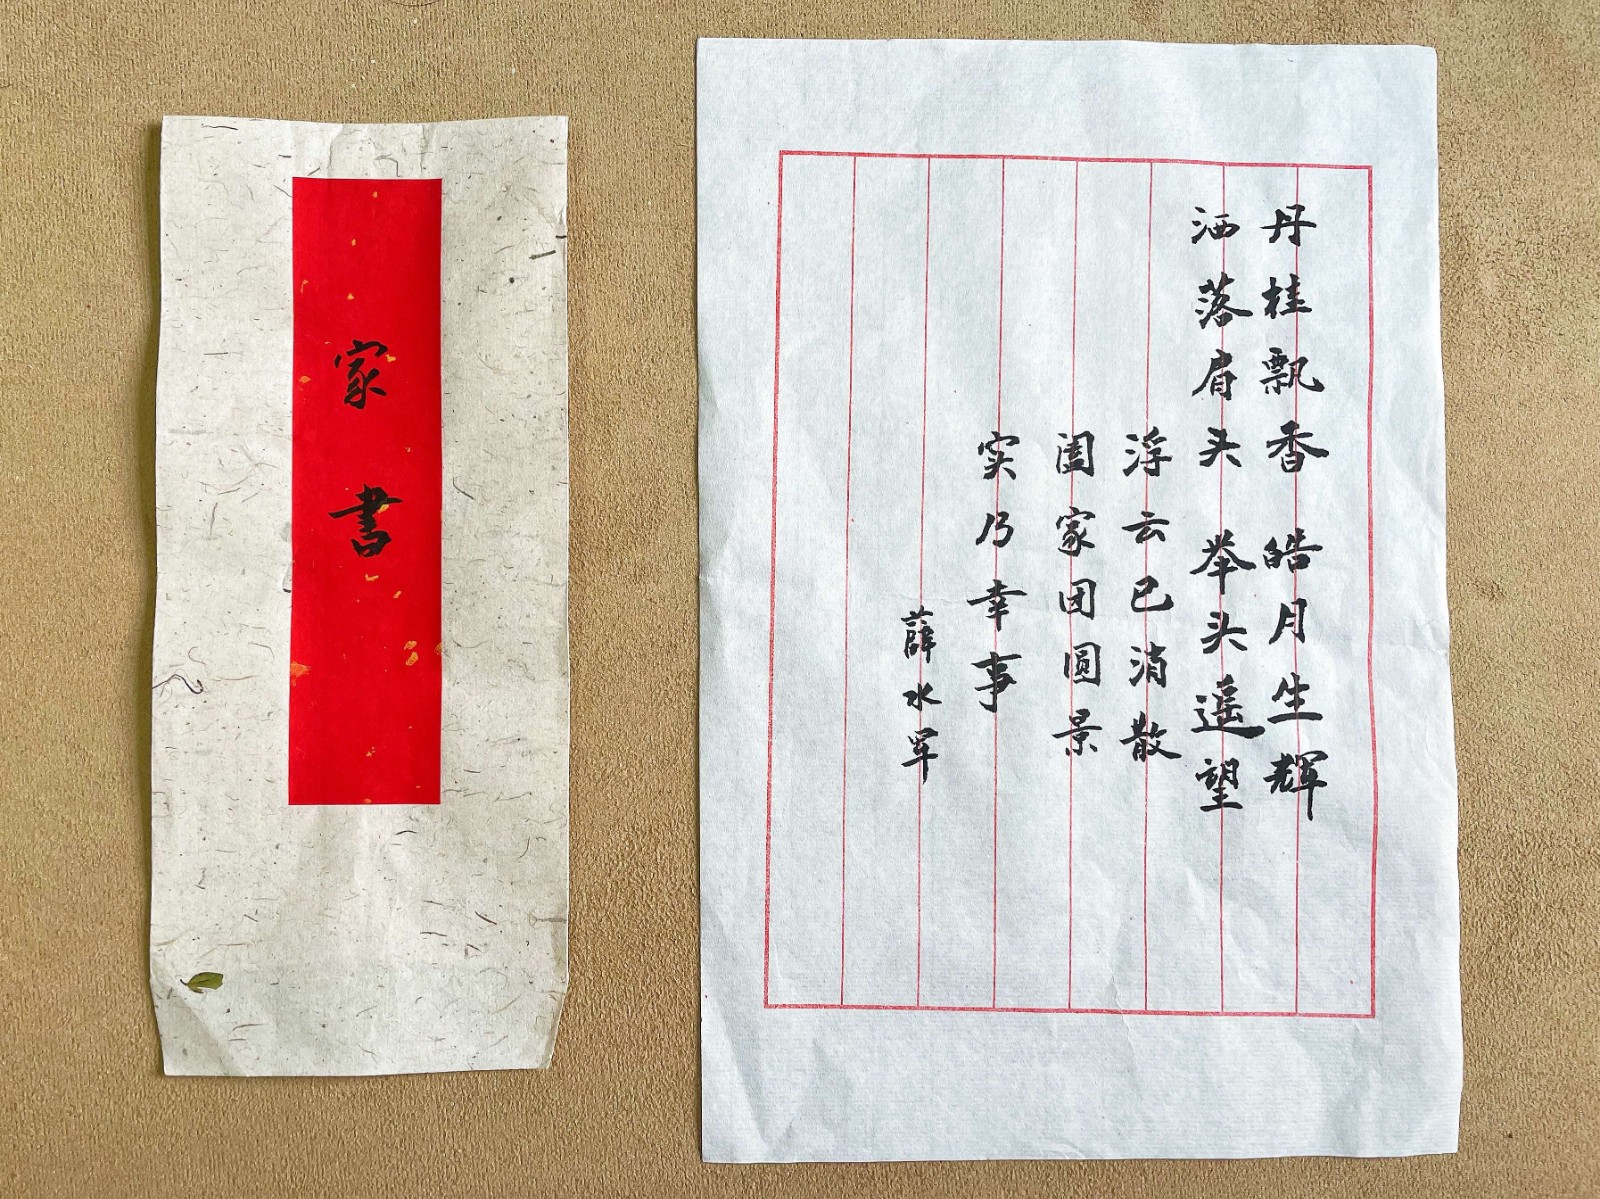 家书
丹桂飘香 皓月生辉
洒落肩头 举头遥望
浮云已消散
阖家团圆景
实乃幸事
薛水罕